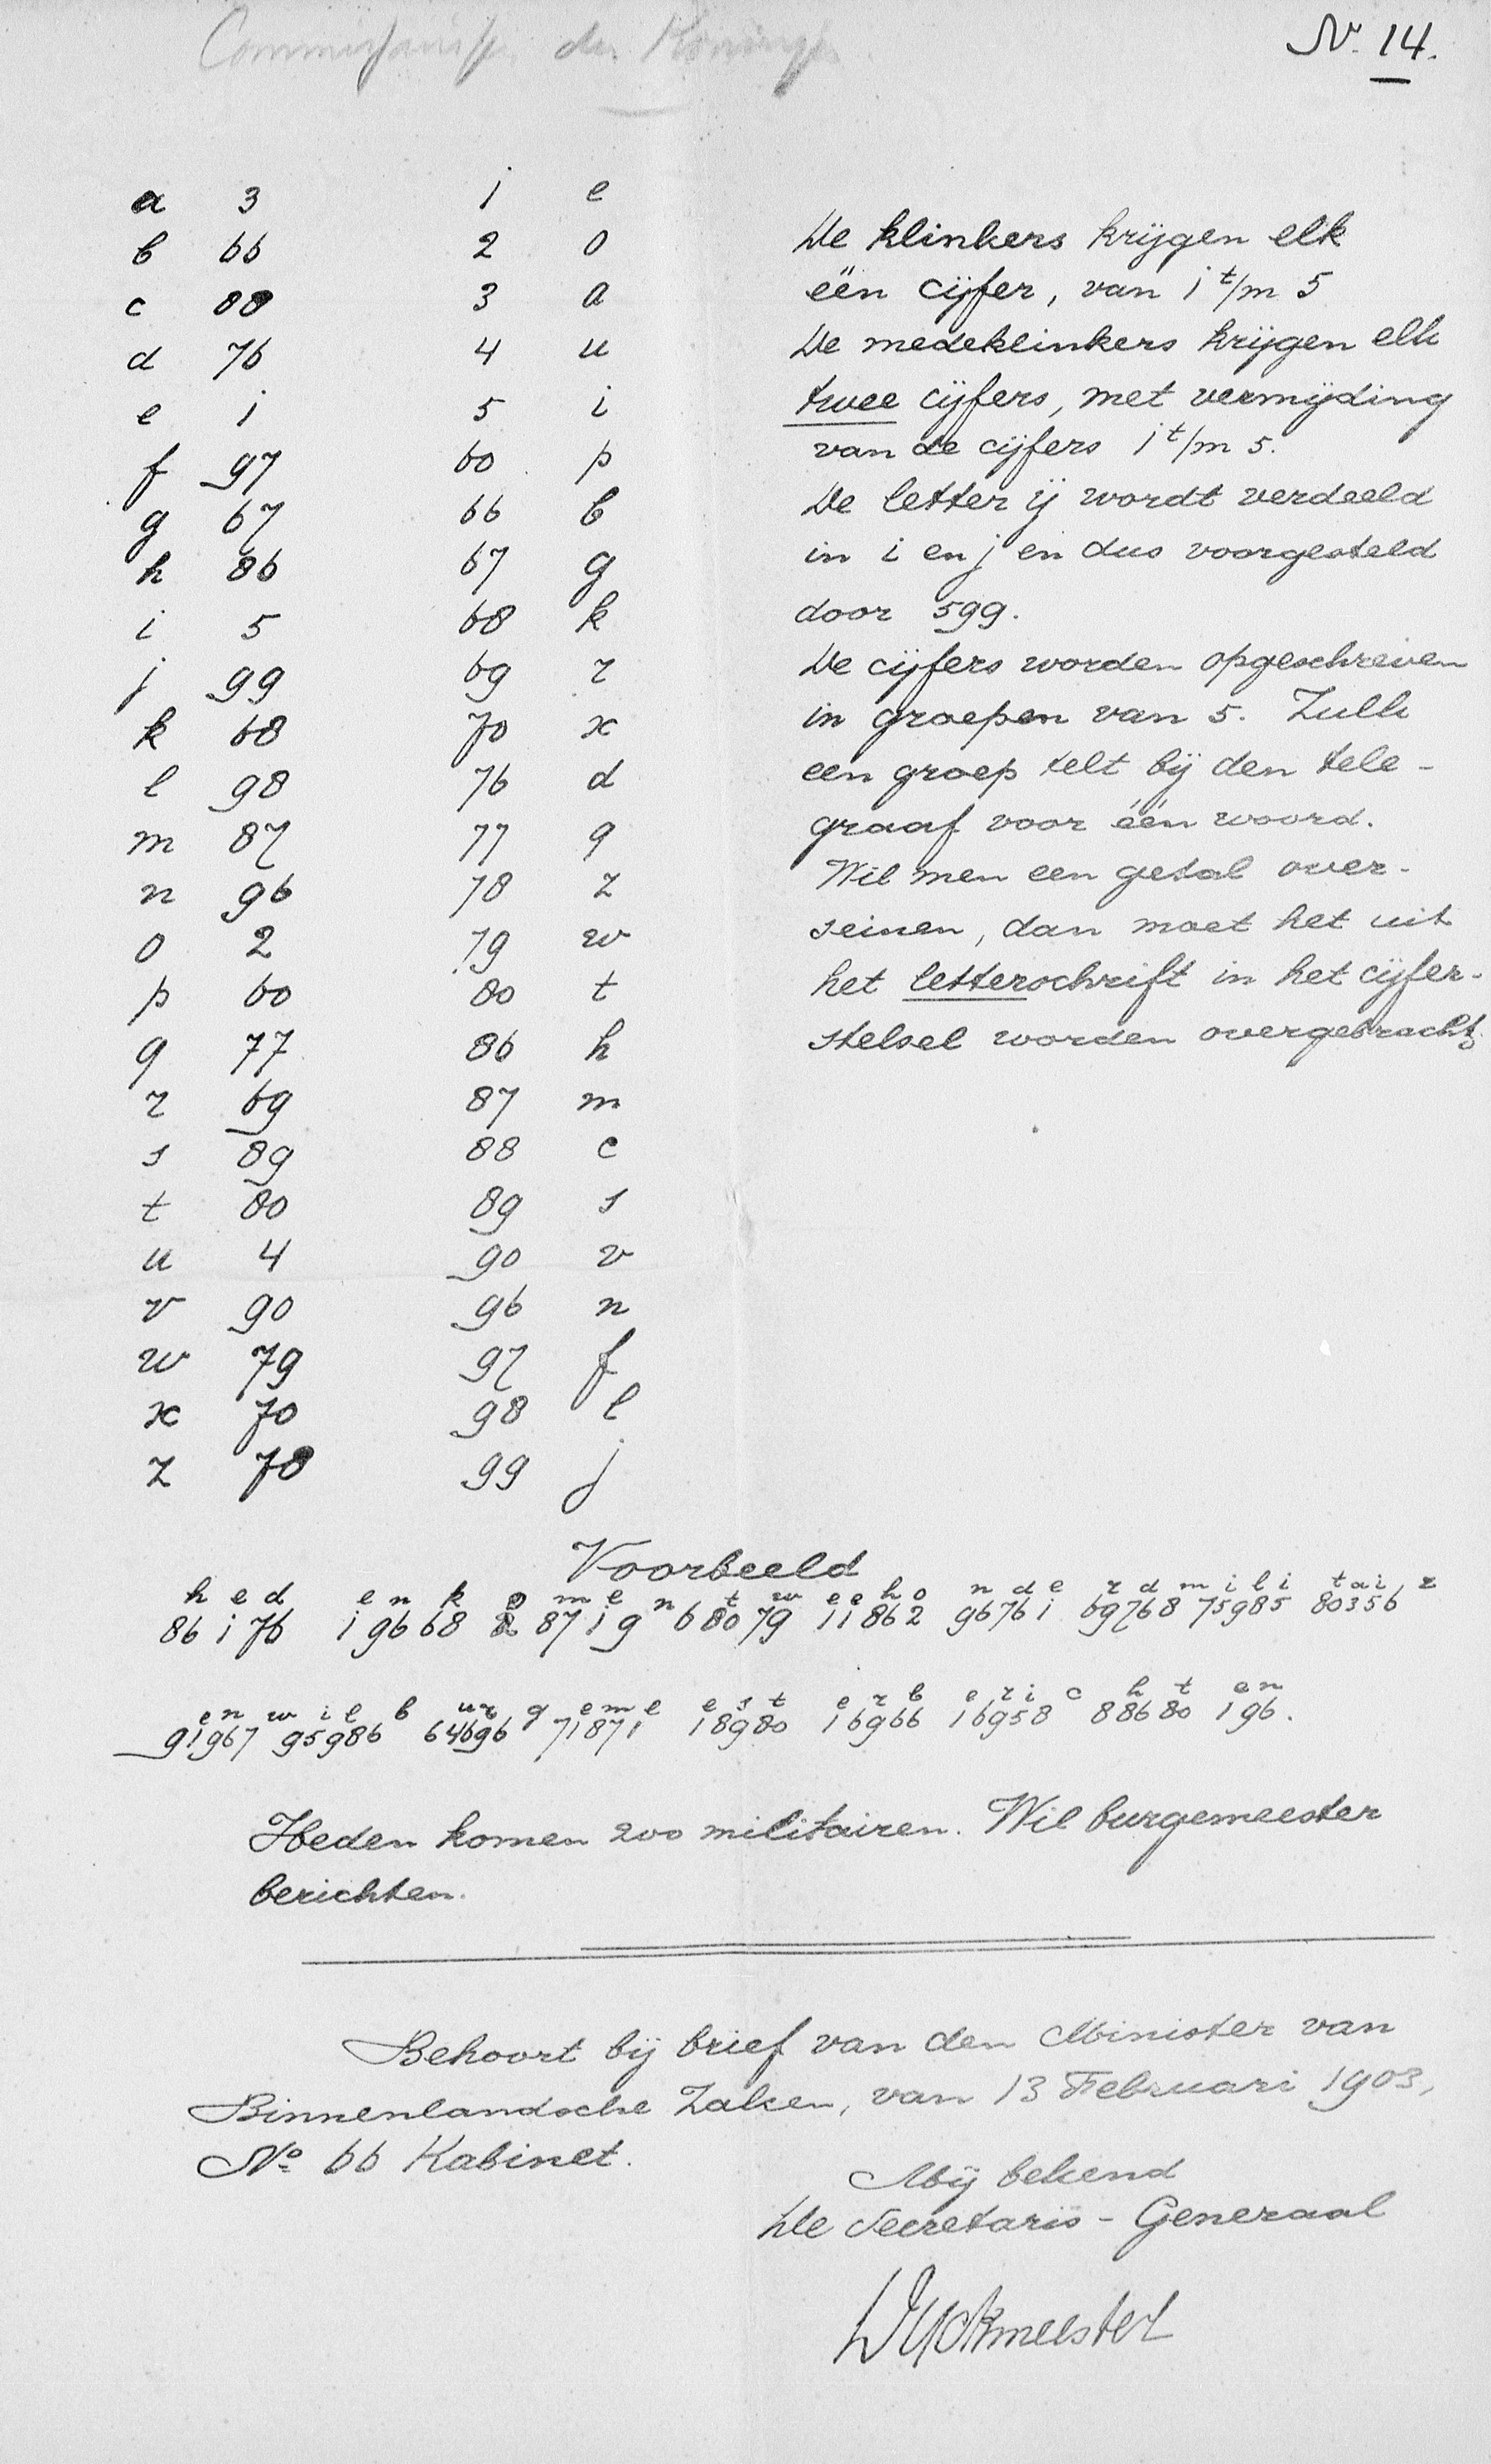 Commissaris der Koningin
No. 14.
a 3 1 e
b 66 2 o
c 88 3 a
d 76 4 u
e 1 5 i
f 97 60 p
g 67 66 b
h 86 67 g
i 5 68 k
j 99 69 r
k 68 70 x
l 98 76 d
m 87 77 q
n 96 78 z
o 2 79 w
p 60 80 t
q 77 86 h
r 69 87 m
s 89 88 c
t 80 89 s
u 4 90 v
v 90 96 n
w 79 97 f
x 70 98 l
z 78 99 j
De klinkers krijgen elk
één cijfer, van 1 t/m 5
De medeklinkers krijgen elk
twee cijfers, met vermijding
van de cijfers 1 t/m 5.
De letter ij wordt verdeeld
in i en j en dus voorgesteld
door 599.
De cijfers worden opgeschreven
in groepen van 5. Zulk
een groep telt bij den tele-
graaf voor één woord.
Wil men een getal over-
seinen, dan moet het uit
het letterschrift in het cijfer-
stelsel worden overgebracht.
Voorbeeld
h e d e n k o m e n t w e e h o n d e r d m i l i t a i r
86176 19668 28719 68079 11862 96761 69768 75985 80356
e n w i l b u r g e m e e s t e r b e r i c h t e n
91967 95986 64696 71871 18980 16966 16958 88680 196.
Heden komen 200 militairen. Wil burgemeester
berichten.
Behoort bij brief van den Minister van
Binnenlandsche Zaken, van 13 Februari 1903,
No 66 Kabinet.
Mij bekend
De Secretaris-Generaal
Dijckmeester